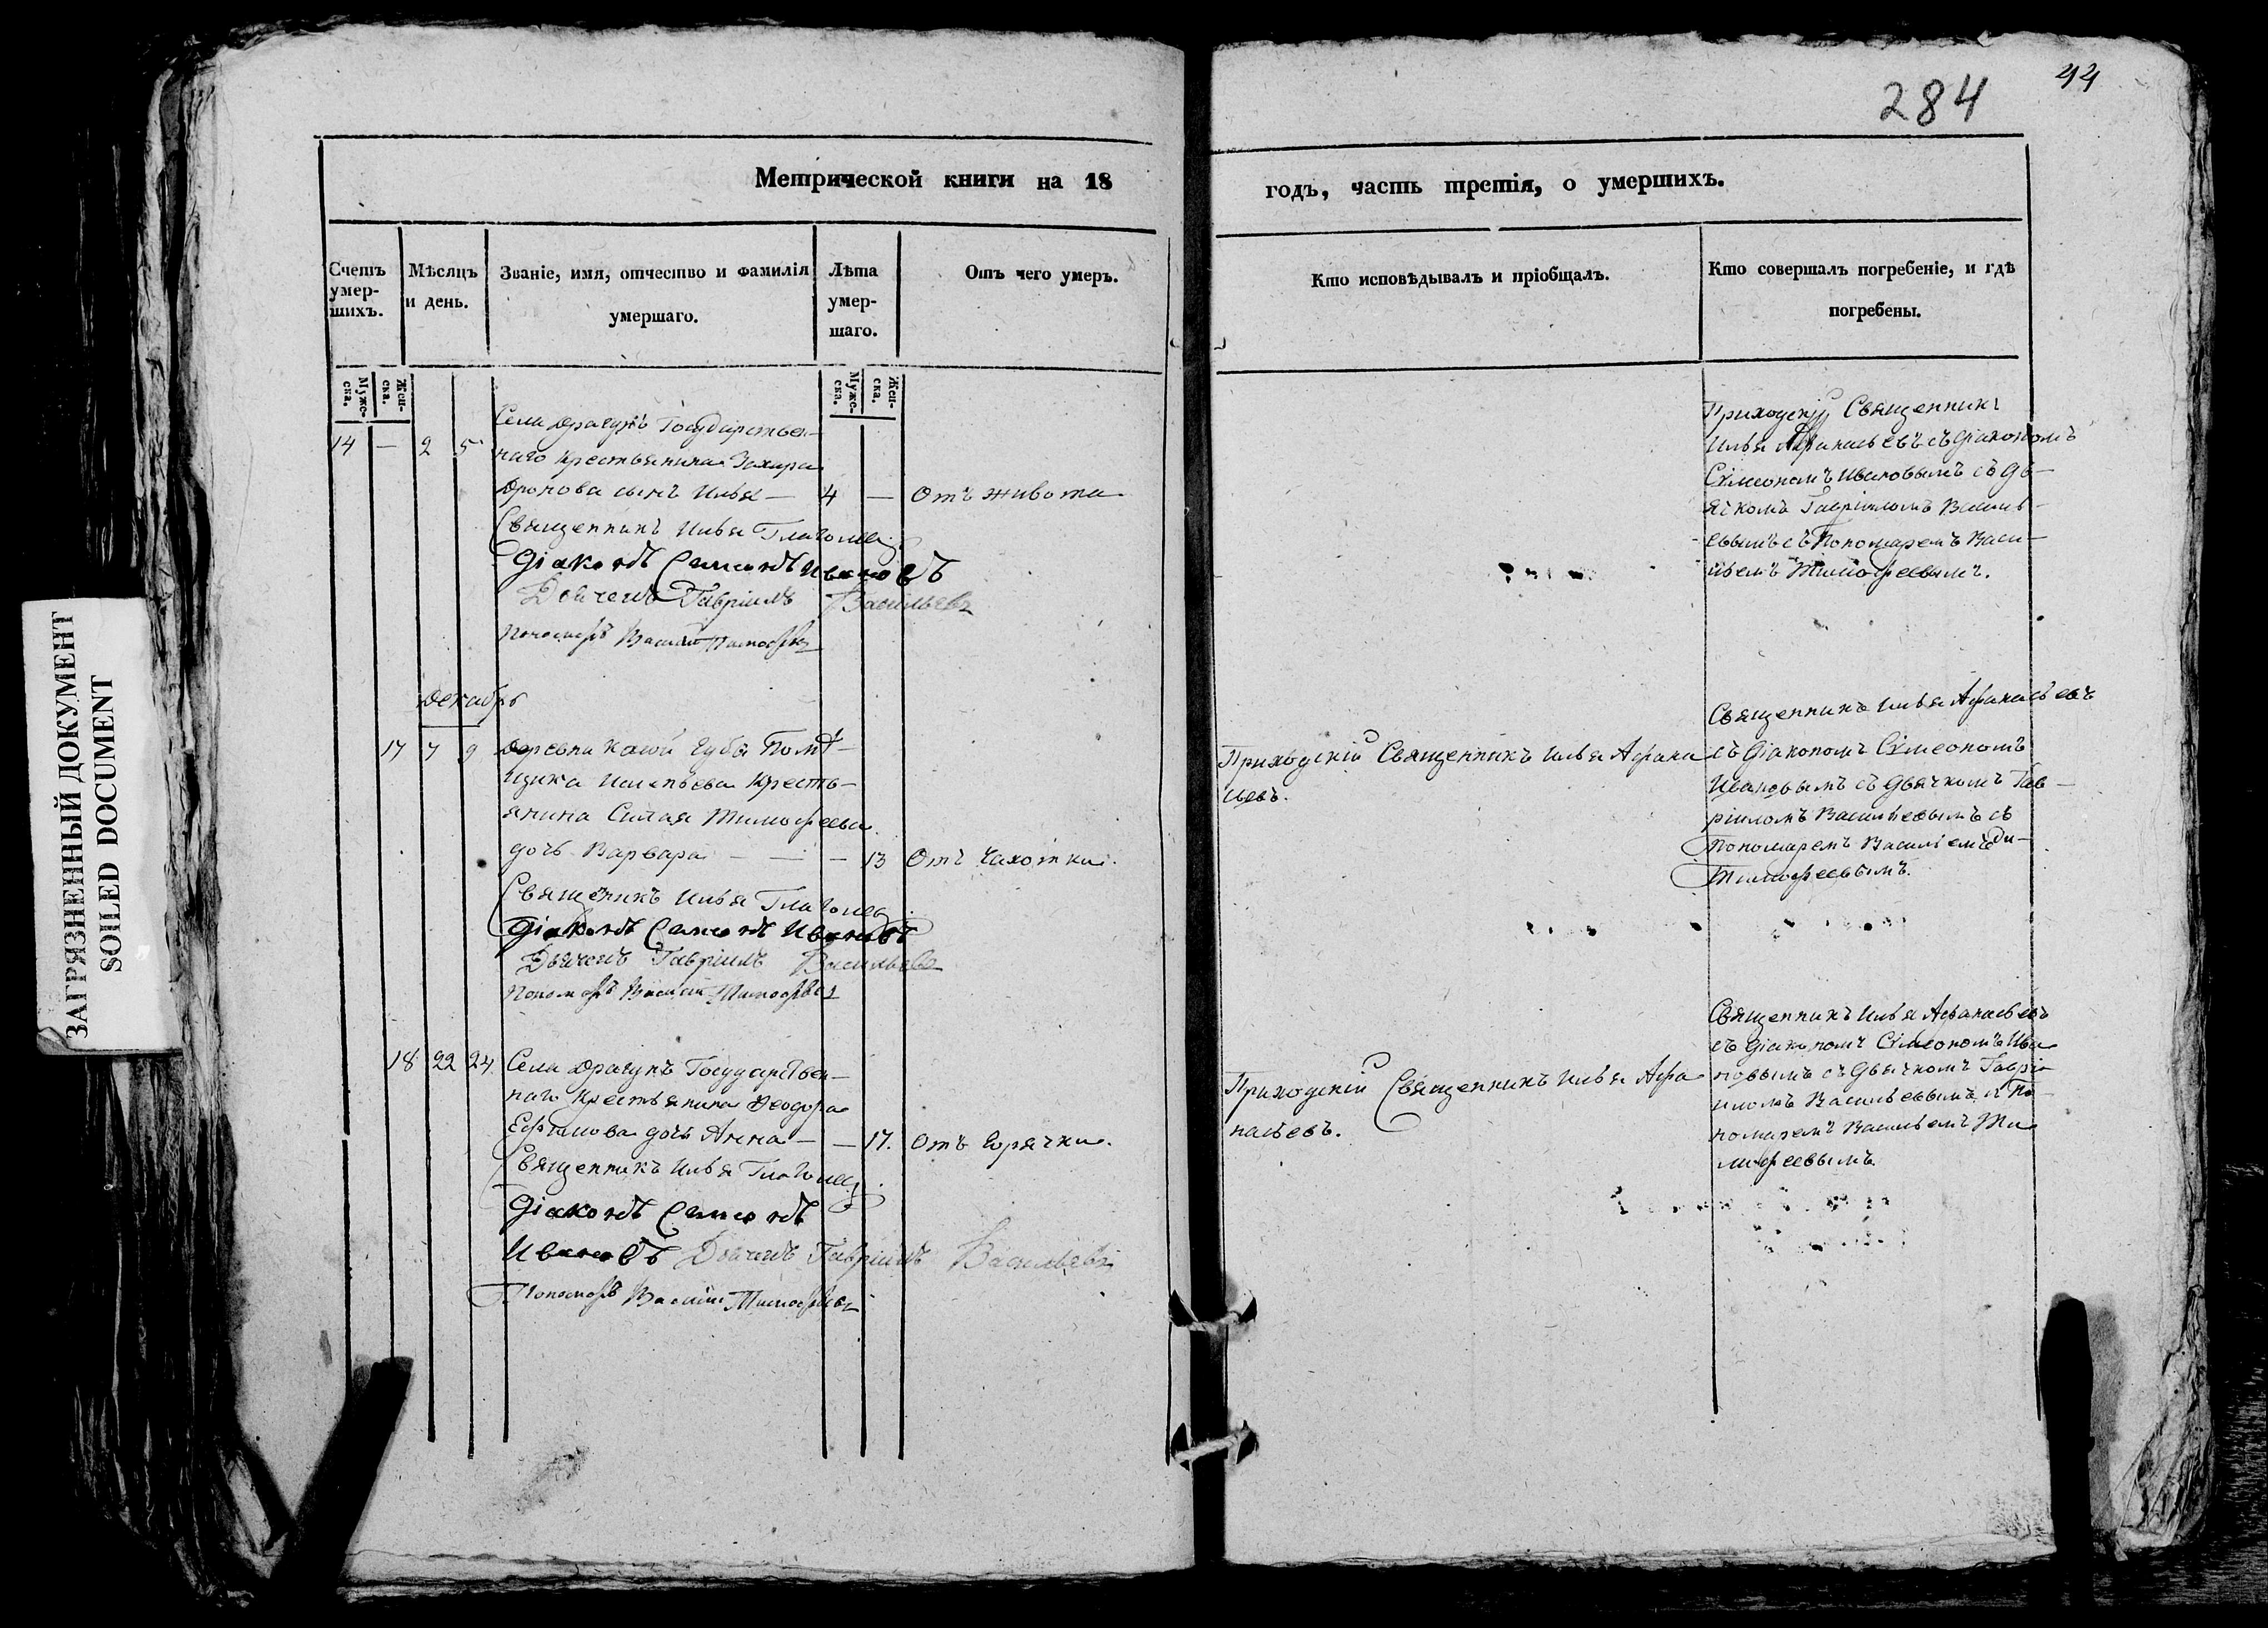 284
44
ЗАГРЯЗНЕННЫЙ ДОКУМЕНТ
SOILED DOCUMENT
Метрической книги на 18
годъ, часть третія, о умершихъ.
Счетъ умер-шихъ.
Мѣсяцъ и день.
Званіе, имя, отчество и фамилія умершаго.
Лѣта умер-шаго.
Отъ чего умеръ.
Кто исповѣдывалъ и пріобщалъ.
Кто совершалъ погребеніе, и гдѣ погребены.
Муже-ска.
Жен-ска.
Муже-ска.
Жен-ска.
Села Драгунъ Государствен-
14 — 2 5 наго крестьянина Захара
Дронова сынъ Илья — 4 — Отъ живота
Священникъ Илья
Діаконъ Симеонъ Ивановъ
Дьячекъ Гавріилъ Васильевъ
Пономарь Василій Тимофеевъ
Приходскій Священникъ
Илья Афанасьевъ съ діакономъ
Сѵмеономъ Ивановымъ съ дь-
ячкомъ Гавріиломъ Василь-
евымъ съ Пономаремъ Васи-
ліемъ Тимофеевымъ.
Декабрь
17 7 9 Деревни Помѣ-
щика крестъ-
янина Тимофеева
дочь Варвара — — — 13 Отъ чахотки.
Священникъ Илья
Діаконъ Симеонъ Ивановъ
Дьячекъ Гавріилъ Васильевъ
Пономарь Василій Тимофеевъ
Приходскій Священникъ Илья Афана
сьевъ.
Священникъ Илья Афанасьевъ
съ діакономъ Сѵмеономъ
Ивановымъ съ дьячкомъ Гав-
ріиломъ Васильевымъ съ
Пономаремъ Василіемъ
Тимофеевымъ.
18 22 24 Села Драгунъ Государствен-
наго Крестьянина Ѳеодора
Ефимова дочь Анна — — 17. Отъ горячки.
Священникъ Илья
Діаконъ Симеонъ
Ивановъ Дьячекъ Гавріилъ Васильевъ
Пономарь Василій Тимофеевъ
Приходскій Священникъ Илья Афа
насьевъ.
Священникъ Илья Афанасьевъ
съ діакономъ Сѵмеономъ Ива
новымъ съ дьячкомъ Гаврі
иломъ Васильевымъ и По-
номаремъ Васильемъ Ти
мофеевымъ.